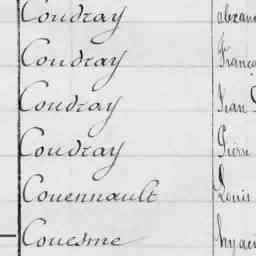 Coudray
Coudray François
Coudray Jean
Coudray Pierre
Couennault Louis
Couesme